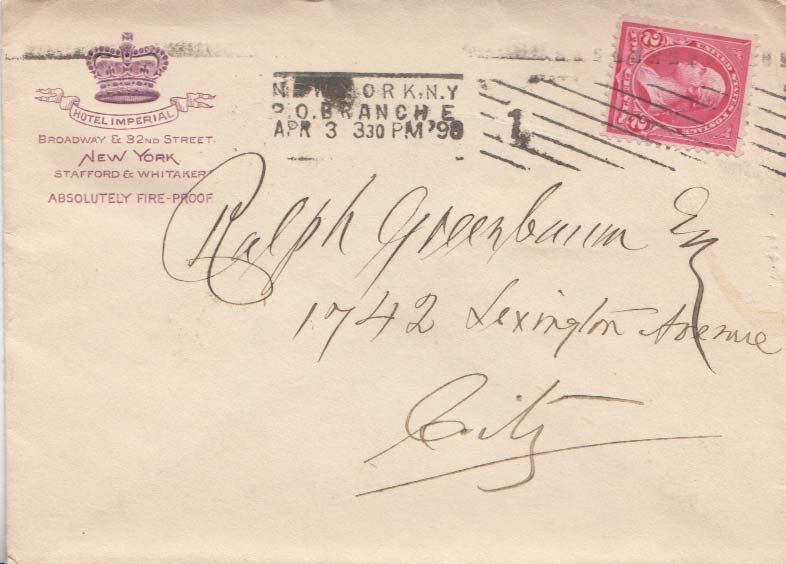 HOTEL IMPERIAL
BROADWAY & 32ND STREET.
NEW YORK
STAFFORD & WHITAKER
ABSOLUTELY FIRE-PROOF.
NEW YORK, N.Y
P.O. BRANCH E
APR 3 330 PM '98
1
UNITED STATES POSTAGE
2 2
Ralph Greenbaum Esq
1742 Lexington Avenue
City